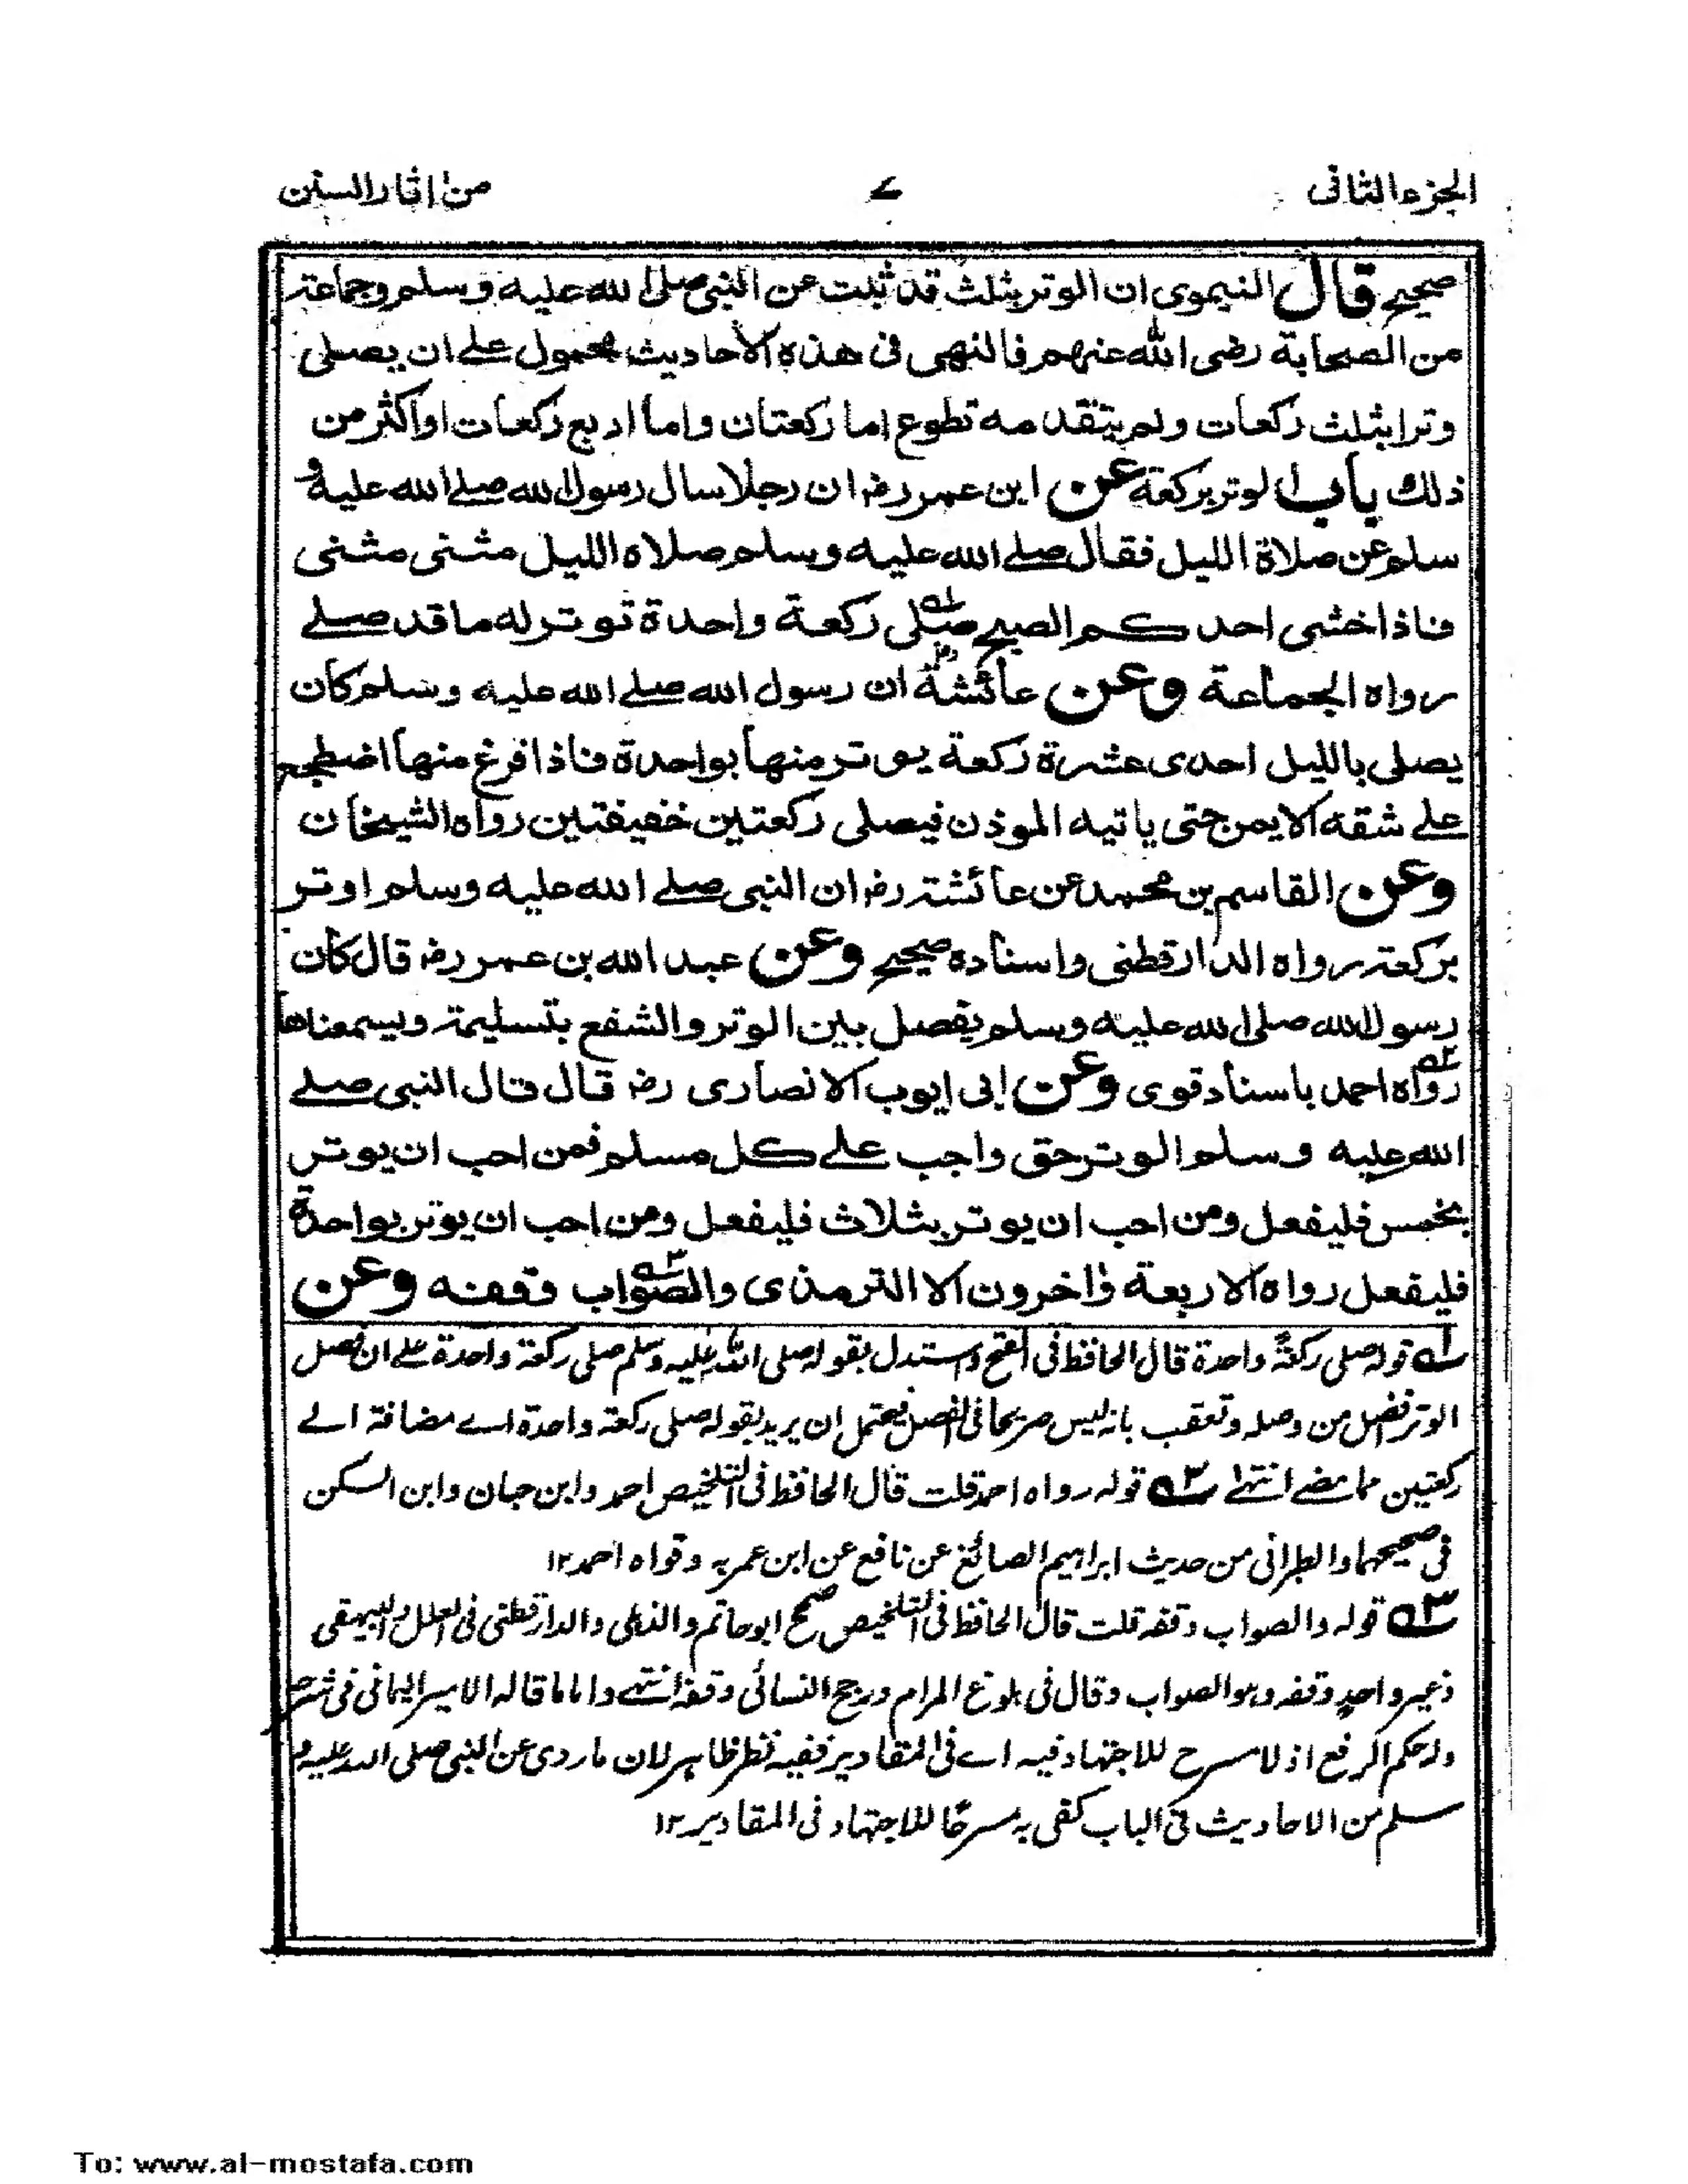 الجزء الثانى ٧ من اثار السنن
صحيح قال النيموى ان الوتر بثلث قد ثبت عن النبى صلى الله عليه وسلم وجماعة
من الصحابة رضى الله عنهم فالنهى فى هذه الاحاديث محمول على ان يصلى
وترا بثلث ركعات ولم يتقدمه تطوع اما ركعتان واما اربع ركعات او اكثر من
ذلك باب الوتر بركعة عن ابن عمر رضـ ان رجلا سال رسول الله صلى الله عليه و
سلم عن صلاة الليل فقال صلى الله عليه وسلم صلاه الليل مثنى مثنى
فاذا خشى احدكم الصبح صلى ركعة واحدة توتر له ما قد صلى
رواه الجماعة وعن عائشة رضـ ان رسول الله صلى الله عليه وسلم كان
يصلى بالليل احدى عشرة ركعة يوتر منها بواحدة فاذا فرغ منها اضطجع
على شقه الايمن حتى ياتيه الموذن فيصلى ركعتين خفيفتين رواه الشيخان
وعن القاسم بن محمد عن عائشة رضـ ان النبى صلى الله عليه وسلم اوتر
بركعة رواه الدارقطنى واسناده صحيح وعن عبد الله بن عمر رضـ قال كان
رسول الله صلى الله عليه وسلم يفصل بين الوتر والشفع بتسليمة ويسمعناها
رواه احمد باسناد قوى وعن ابى ايوب الانصارى رضـ قال قال النبى صلى
الله عليه وسلم الوتر حق واجب على كل مسلم فمن احب ان يوتر
بخمس فليفعل ومن احب ان يوتر بثلاث فليفعل ومن احب ان يوتر بواحدة
فليفعل رواه الاربعة واخرون الا الترمذى والصواب وقفه وعن
١ه قوله صلى ركعة واحدة قال الحافظ فى الفتح واستدل بقوله صلى الله عليه وسلم صلى ركعة واحدة على ان فصل
الوتر افضل من وصله وتعقب بانه ليس صريحا فى الفصل فيحتمل ان يريد بقوله صلى ركعة واحدة اے مضافة الى
ركعتين مما مضے انتهى ٢ه قوله رواه احمد قلت قال الحافظ فى التلخيص احمد وابن حبان وابن السكن
فى صحيحهما والطبرانى من حديث ابراهيم الصائغ عن نافع عن ابن عمر به وقواه احمد ١٢
٣ه قوله والصواب وقفه قلت قال الحافظ فى التلخيص صحح ابو حاتم والذهلى والدارقطنى فى العلل والبيهقى
وغير واحد وقفه وهو الصواب وقال فى بلوغ المرام ورجح النسائى وقفه انتهى واما ما قاله الامير اليمانى فى شرحه
وله حكم الرفع اذ لا مسرح للاجتهاد فيه اے فى المقادير ففيه نظر ظاهر لان ما روى عن النبى صلى الله عليه و
سلم من الاحاديث فى الباب كفى به مسرحًا للاجتهاد فى المقادير ١٢
To: www.al-mostafa.com